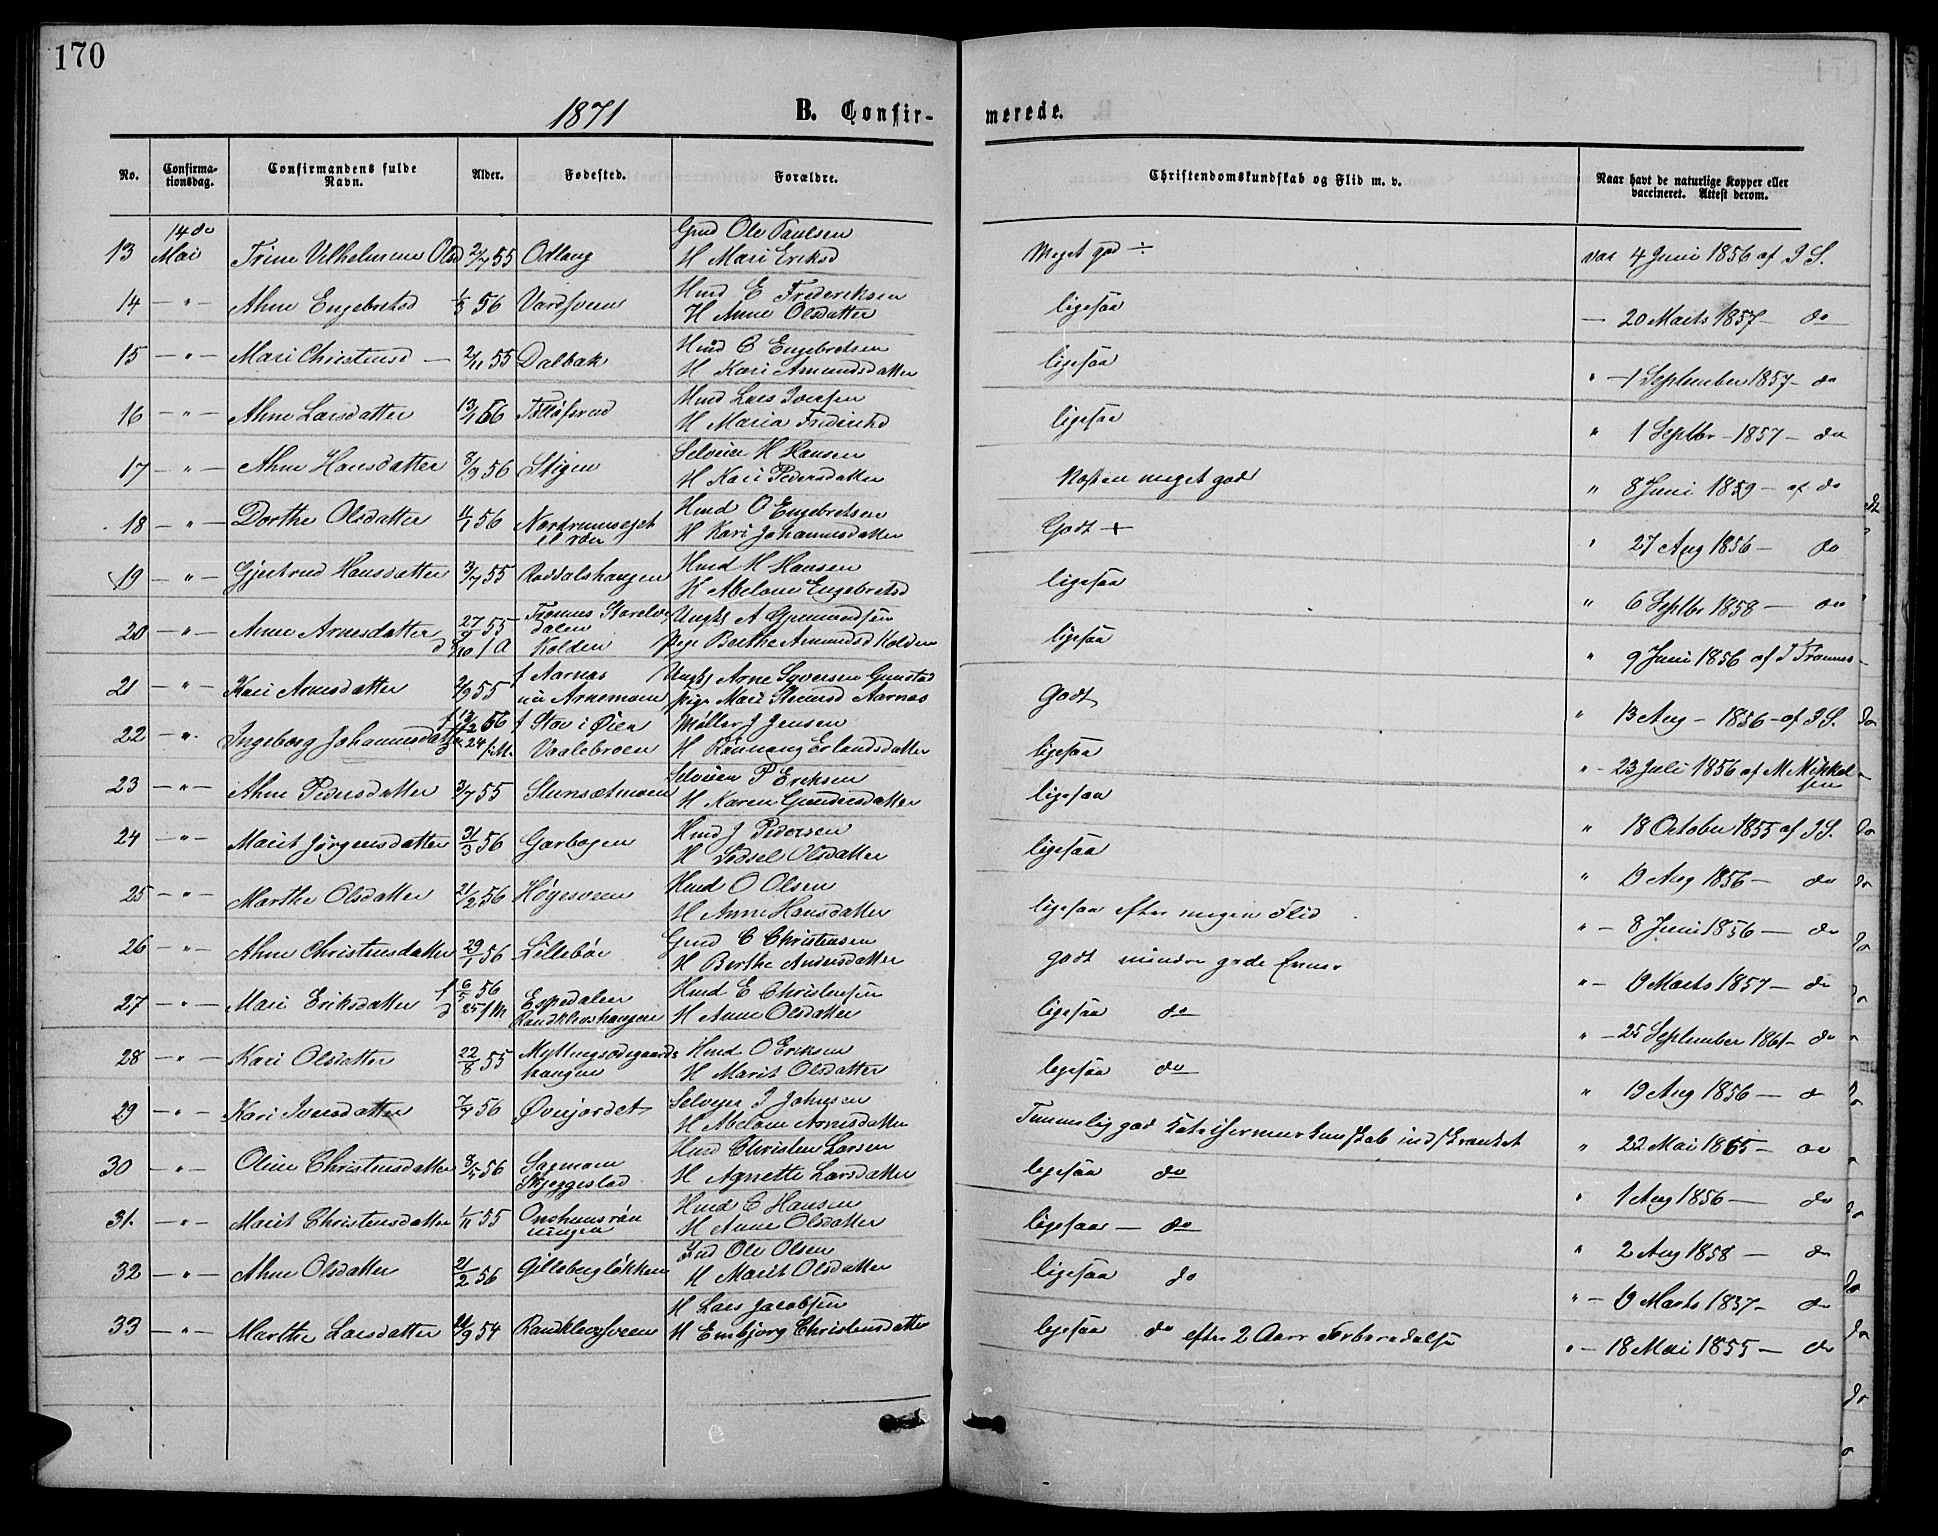 170
1871 B. Confirmerede.
No. Confirmationsdag. Confirmandens fulde Navn. Alder. Fødested. Forældre. Christendomskundskab og Flid m. v. Naar havt de naturlige Kopper eller vaccineret. Attest derom.
13 14de Mai Trine Vilhelmine Olsd 2/7 55 Odlaug Gmd Ole Paulsen H Mari Eriksd Meget god ÷ vac 4 Juni 1856 af I S.
14 - " - Ahne Engebretsd 1/3 56 Vardsveen Hmd E Frederiksen H Anne Olsdatter ligesaa — 20 Marts 1857 — do
15 - " - Mari Christensd — 2/11 55 Dalbak Hmd C Engebretsen H Kari Amundsdatter ligesaa " — 1 September 1857 — do
16 - " - Ahne Larsdatter 13/1 56 Hmd Lars Iversen H Maria ligesaa " 1 Septbr — 1857 — do
17 - " - Ahne Hansdatter 8/9 56 Stigen Selveier H Hansen H Kari Pedersdatter Næsten meget god " 8 Juni 1859 — af do
18 - " - Dorthe Olsdatter 11/1 56 Hmd O Engebretsen H Kari Johannesdatter Godt + " 27 Aug 1856 — do
19 - " - Gjertrud Hansdatter 3/7 55 Roddalshaugen Hmd H Hansen H Abelone Engebretsd ligesaa " 6 Septbr 1858 — do
20 - " - Anne Arnesdatter 27/9 55 Tromus dalen Kolden Ungk A Pige Berthe Amundsd Kolden ligesaa " 9 Juni 1856 af I Tromus
21 - " - Kari Arnesdatter 2/9 55 f Aarnas nu Arnemoen Ungk Arne Syversen Gunstad Pige Mari Aarnas Godt " 13 Aug — 1856 — af I S.
22 - " - Ingeborg Johannesdatter f 12/2 56 f Stav i Øier Vaalebroen Møller J Jensen H Rønnaug Erlandsdatter ligesaa " — 23 Juli 1856 af M Mikkelsen
23 - " - Ahne Pedersdatter 3/7 55 Stensætmoen Selveier P Eriksen H Karen Gundersdatter ligesaa " 18 October 1855 af I S.
24 - " - Marit Jørgensdatter 31/3 56 Garbogen Hmd J Pedersen H Sidsel Olsdatter ligesaa " 19 Aug 1856 — do
25 - " - Marthe Olsdatter 21/2 56 Høgesveen Hmd O Olsen H Anne Hansdatter ligesaa efter megen Flid " — 8 Juni 1856 — do
26 - " - Ahne Christensdatter 29/1 56 Lillebøe Gmd C Christensen H Berthe Andersdatter godt mindre gode Evner " — 19 Marts 1857 — do
27 - " - Mari Eriksdatter f 6/5 56 d 25/5 M Espedalen Randklevshaugen Hmd E Christensen H Anne Olsdatter ligesaa do " — 25 September 1861 — do
28 - " - Kari Olsdatter 22/8 55 Myttingsødegaardshaugen Hmd O Eriksen H Marit Olsdatter ligesaa do " 19 Aug 1856 — do
29 - " - Kari Iversdatter 7/4 56 Øvrejordet Selveyer I Johnsen H Abelone Arnesdatter Temmelig god Katekismuskundskab indskrænket " 22 Mai 1865 — do
30 - " - Oline Christensdatter 3/4 56 Sagmoen Skjeggestad Hmd Christen Larsen H Agnette Larsdatter ligesaa do " 1 Aug 1856 — do
31. - " - Marit Christensdatter 1/11 55 Onshuusrønningen Hmd C Hansen H Anne Olsdatter ligesaa — do " 2 Aug 1858 — do
32 - " - Ahne Olsdatter 21/2 56 Gillebergløkken Ole Olsen H Marit Olsdatter ligesaa do " — 19 Marts 1857 — do
33 - " - Marthe Larsdatter 21/9 54 Randklevsveen H Lars Jacobsen H Embjorg Christensdatter ligesaa do efter 2 Aars Forberedelse " — 18 Mai 1855 — do